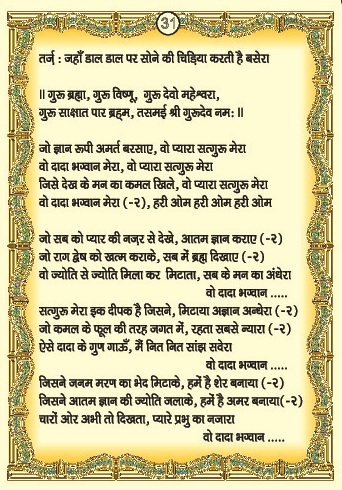 31
तर्ज : जहाँ डाल डाल पर सोने की चिड़िया करती है बसेरा
॥ गुरू ब्रह्मा, गुरू विष्णू, गुरू देवो महेश्वरा,
गुरू साक्षात पार ब्रह्म, तसमई श्री गुरूदेव नम: ॥
जो ज्ञान रूपी अमर्त बरसाए, वो प्यारा सत्गुरू मेरा
वो दादा भगवान मेरा, वो प्यारा सत्गुरू मेरा
जिसे देख के मन का कमल खिले, वो प्यारा सत्गुरू मेरा
वो दादा भगवान मेरा (-२), हरी ओम हरी ओम हरी ओम
जो सब को प्यार की नज़र से देखे, आतम ज्ञान कराए (-२)
जो राग द्वेष को खत्म कराके, सब में ब्रह्म दिखाए (-२)
वो ज्योति से ज्योति मिला कर मिटाता, सब के मन का अंधेरा
वो दादा भगवान .....
सत्गुरू मेरा इक दीपक है जिसने, मिटाया अज्ञान अन्धेरा (-२)
जो कमल के फूल की तरह जगत में, रहता सबसे न्यारा (-२)
ऐसे दादा के गुण गाऊँ, मैं नित नित सांझ सवेरा
वो दादा भगवान .....
जिसने जनम मरण का भेद मिटाके, हमें है शेर बनाया (-२)
जिसने आतम ज्ञान की ज्योति जलाके, हमें है अमर बनाया(-२)
चारों ओर अभी तो दिखता, प्यारे प्रभु का नजारा
वो दादा भगवान .....